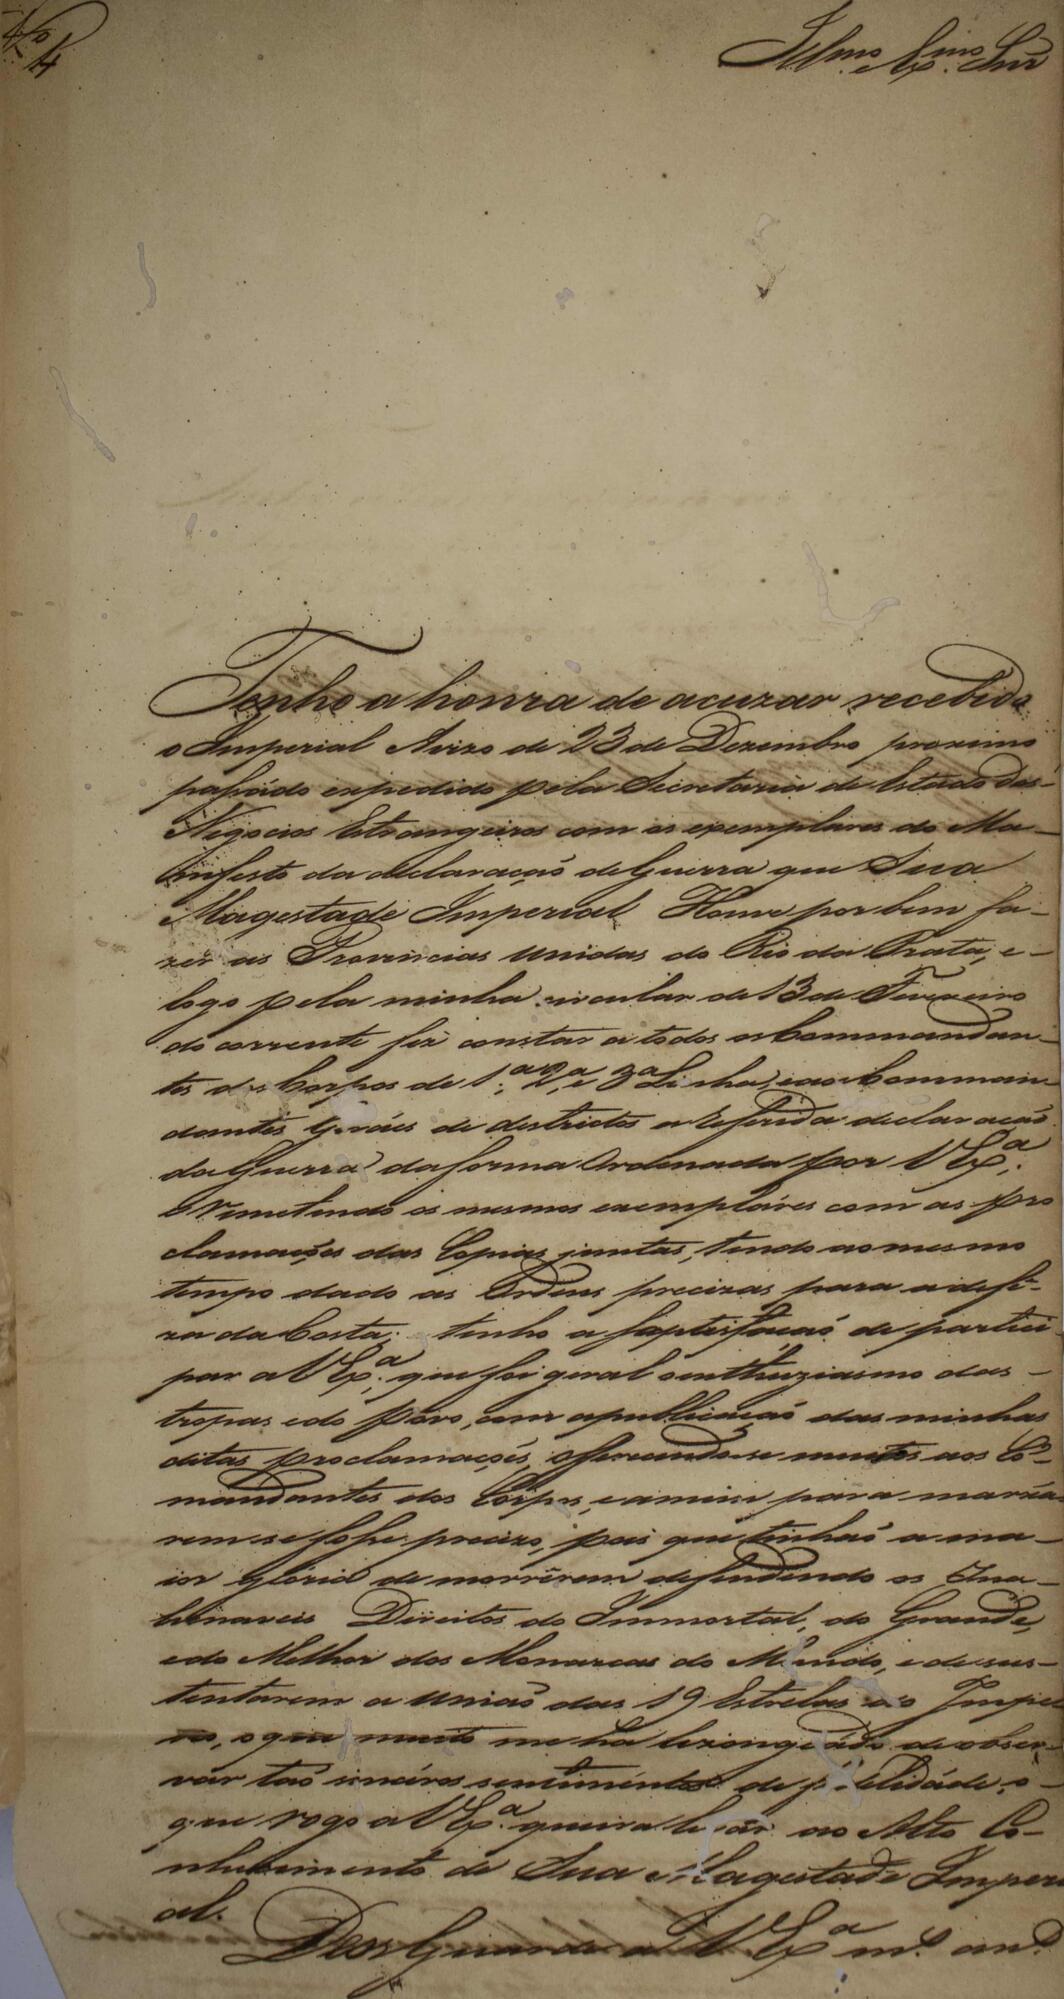 Nº 4
Illmo. Exmo. Snr
Tenho a honra de acuzar recebido
o Imperial Avizo de 23 de Dezembro proximo
passádo expedido pela Secretaria de Estado dos
Negocios Estrangeiros com os exemplares do Ma-
infesto da declaração de Guerra que Sua
Magestade Imperial Houve por bem fa-
zer as Provincias unidas do Rio da Prata, e-
logo pela minha circular de 13 de Fevereiro
do corrente fiz constar a todos os Comman​dan-
tes dos Corpos de 1.ª 2.ª e 3.ª Linha, e aos Comman
dantes Geráes de districtos a referida declaração
da Guerra da forma Ordenada por V Exª.
Remetendo os mesmos exempláres com as pro
clamações das Copias juntas, tendo ao mesmo
tempo dado as Ordens precizas para a defe-
za da Costa; tenho a saptisfação de partici
par a V Exª., que foi geral o enthuziasmo das-
tropas e do Povo, com a publicação das minhas
ditas proclamações, offerecendo-se muitos aos Co-
mandantes dos Corpos, e a mim para marcha
rem se fosse precizo, pois que tinhão a ma-
ior glória de morrêrem defendendo os Ina-
lienaveis Direitos do Immortal, do Grande,
e do Melhor dos Monarcas do Mundo, e de sus-
tentarem a união das 19 Estrelas do Impe
rio, o que muito me ha lizongeádo de obser-
var tão sincéros sentimentos de fidelidáde, o-
que rogo a V Exª. queira levár ao Alto Co-
nhecimento de Sua Magestade Imperi
al.
Deos Guarde a V. Exª ms. ans.